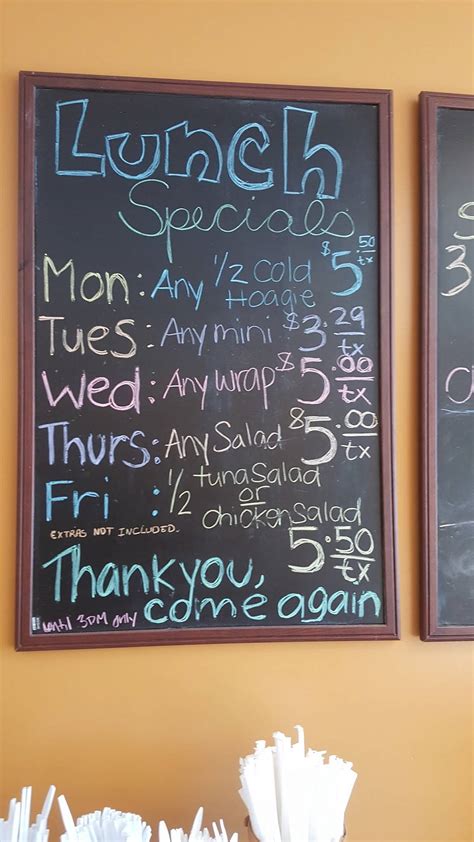 Lunch
Specials
Mon: Any 1/2 Cold Hoagie $5.50/tx
Tues: Any mini $3.29/tx
Wed: Any wrap $5.00/tx
Thurs: Any Salad $5.00/tx
Fri: 1/2 tuna Salad
or
chicken Salad
EXTRAS NOT INCLUDED.
5.50/tx
Thank you,
come again
until 3PM only
S
3